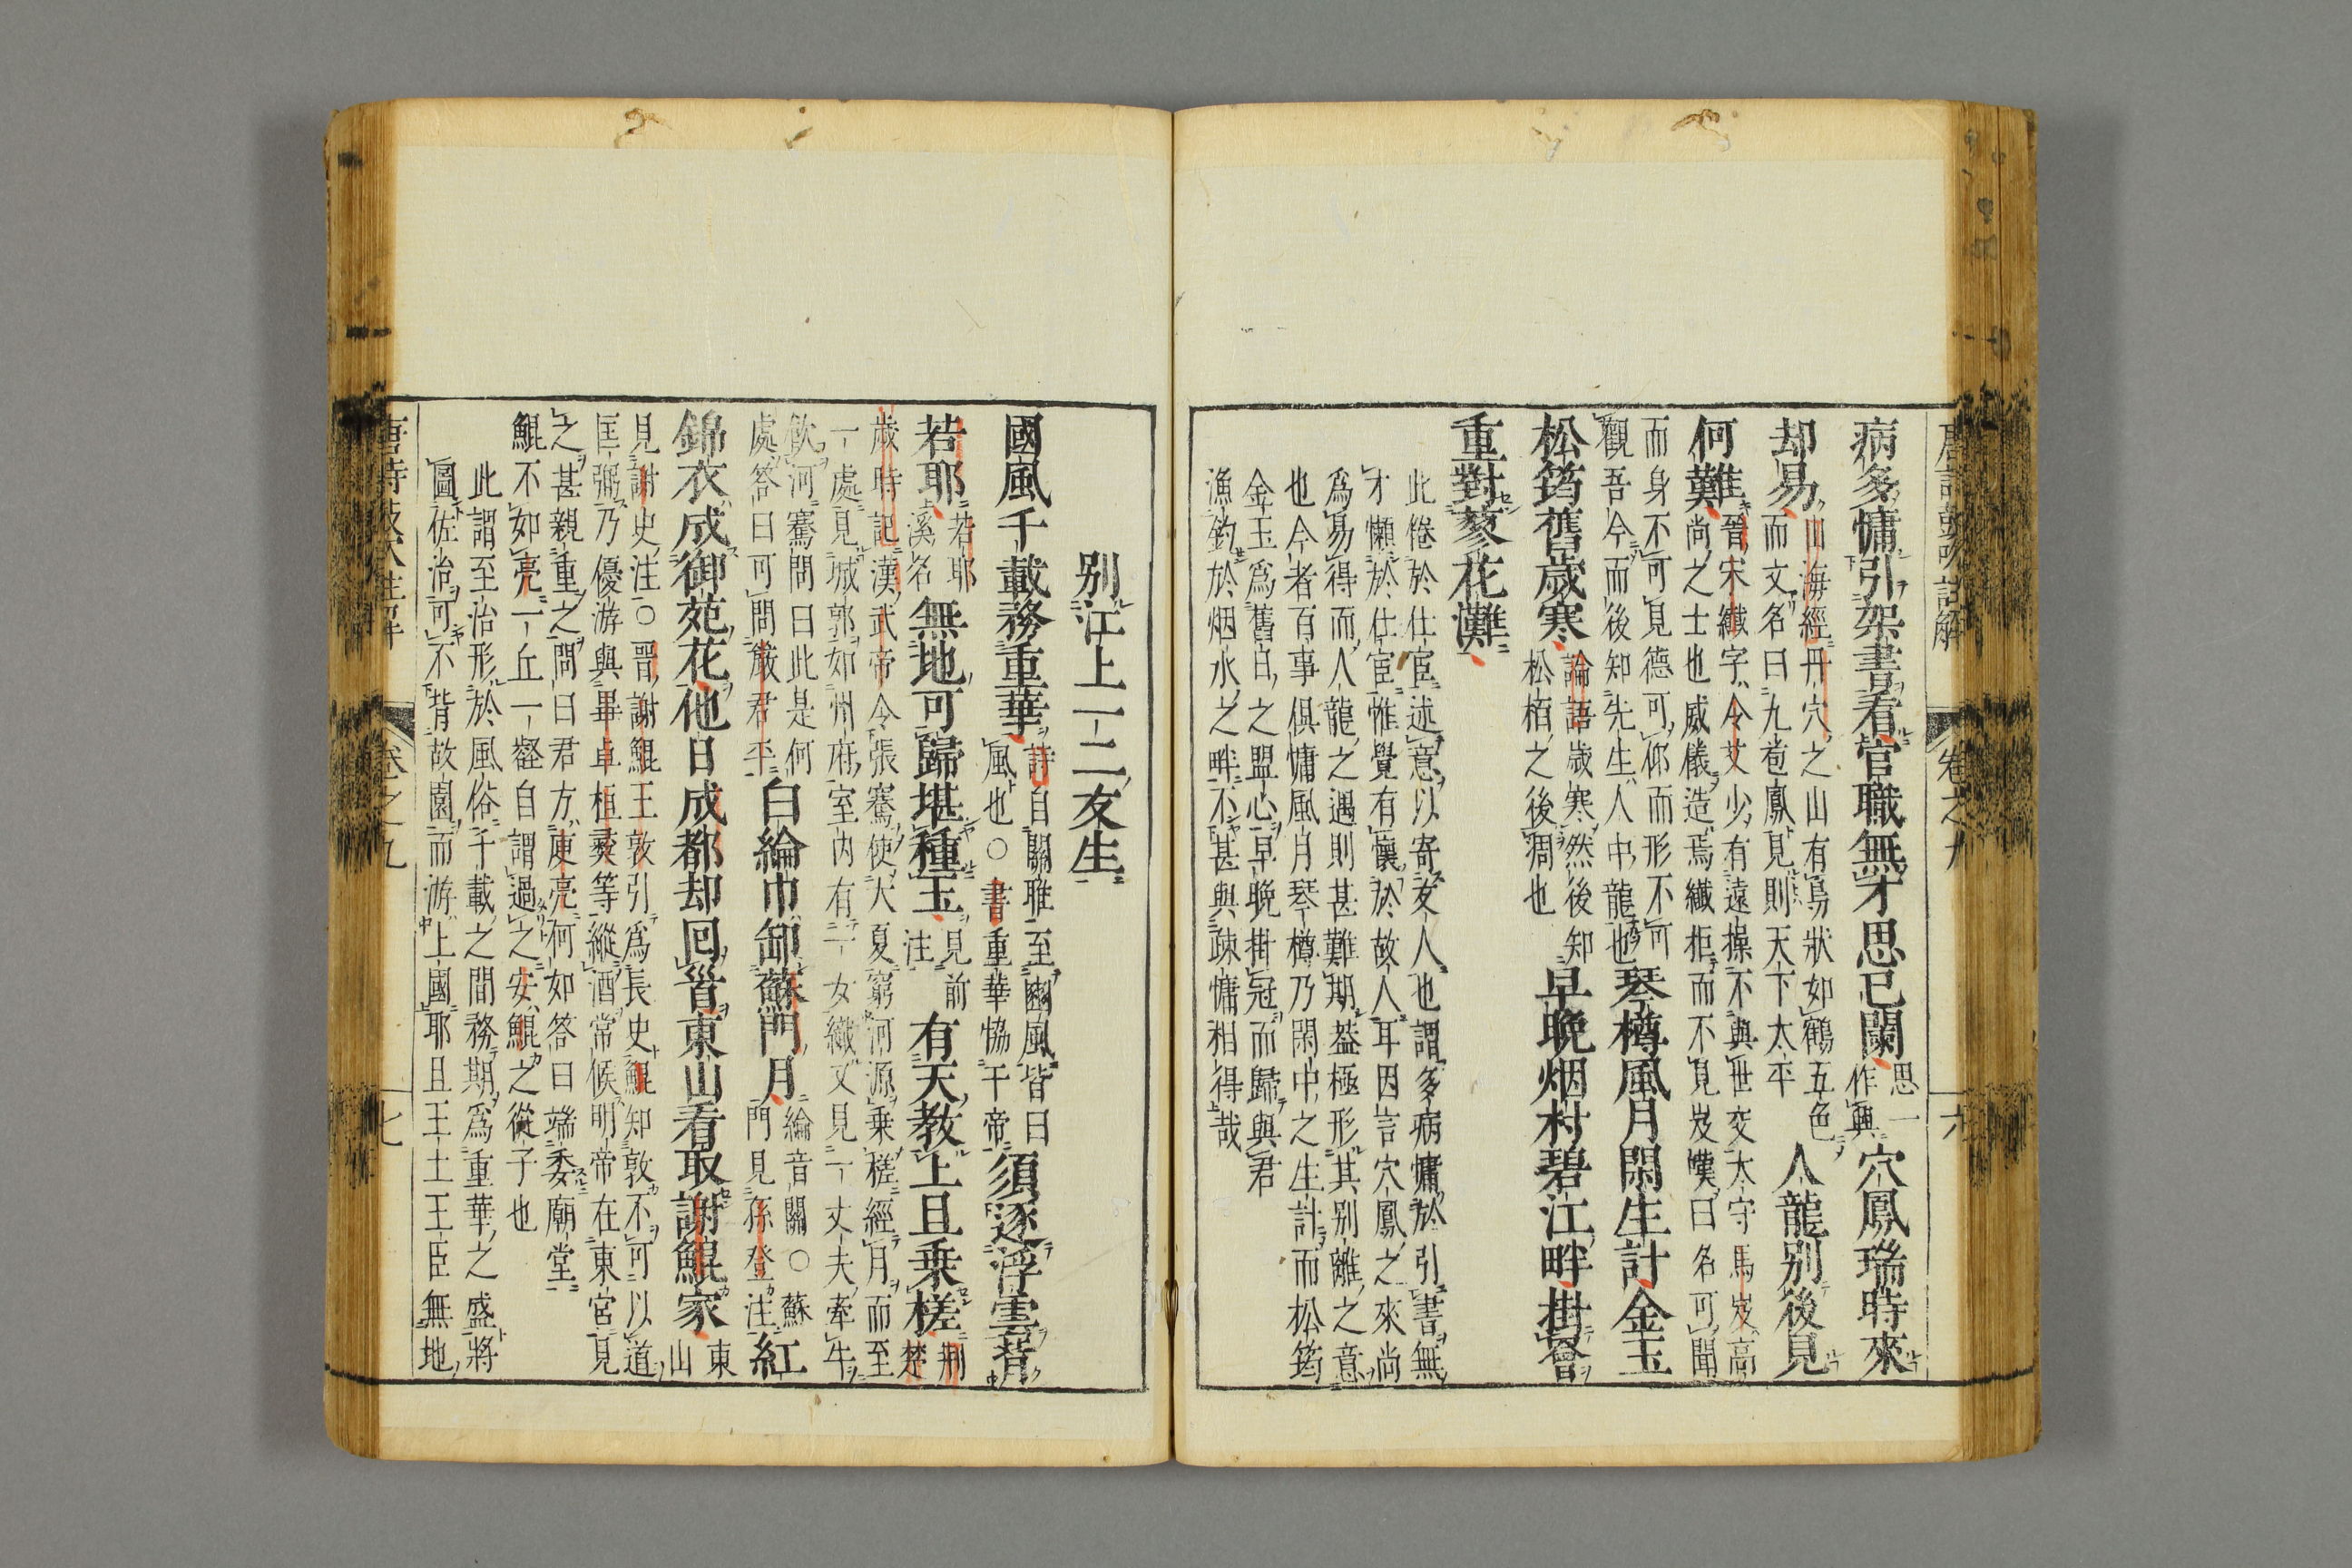 病多慵引架書看官職無才思已闌思一作興穴鳳瑞時來
却易山海經丹穴之山有鳥狀如鶴五色而文名曰九苞鳳見則天下太平人龍別後見
何難晉宋纖字令艾少有遠操不與世交太守馬岌高尚之士也威儀造焉纖拒而不見岌嘆曰名可聞
而身不可見德可仰而形不可觀吾今而後知先生人中龍也琴樽風月閑生計金玉
松筠舊歲寒論語歲寒然後知松栢之後凋也早晚烟村碧江畔掛罾
重對蓼花灘
此倦於仕宦述意以寄友人也謂多病慵於引書無
才懶於仕宦惟覺有懷於故人耳因言穴鳳之來尚
爲易得而人龍之遇則甚難期葢極形其別離之意
也今者百事俱慵風月琴樽乃閑中之生計而松筠
金玉爲舊日之盟心早晚掛冠而歸與君
漁釣於烟水之畔不甚與疎慵相得哉
唐詩鼓吹註解 卷之九 六
別江上一二友生
國風千載務重華詩自關雎至豳風皆曰風也○書重華恊于帝須逐浮雲背
若耶若耶溪名無地可歸堪種玉見前注有天教上且乗槎荊楚
歲時記漢武帝令張騫使大夏窮河源乗槎經月而至
一處見城郭如州府室内有一女織又見一丈夫牽牛
飲河騫問曰此是何處答曰可問嚴君平白綸巾卸蘇門月綸音關○蘇門見孫登注紅
錦衣成御苑花他日成都却回首東山看取謝鯤家東山
見謝史注○晋謝鯤王敦引爲長史鯤知敦不可以道
匡弼乃優游與畢卓桓彝等縱酒常候明帝在東宮見
之甚親重之問曰君方庾亮何如答曰端委廟堂
鯤不如亮一丘一壑自謂過之安鯤之從子也
此謂至治形於風俗千載之間務期爲重華之盛將
圖佐治可不背故園而游上國耶且王土王臣無地
唐詩鼓吹註解 卷之九 七